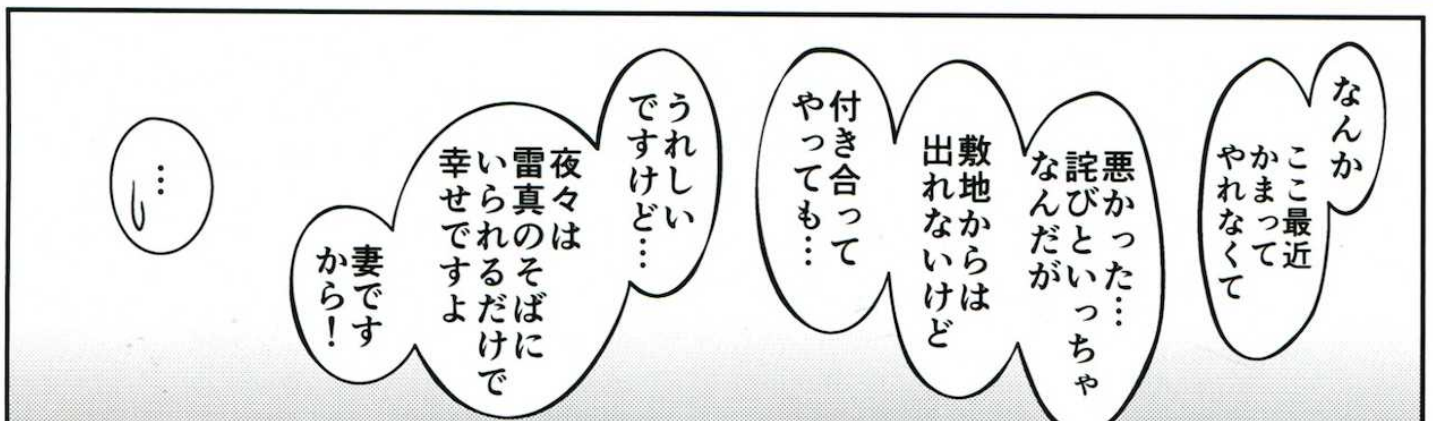 なんか
ここ最近
かまって
やれなくて
悪かった…
詫びといっちゃ
なんだが
敷地からは
出れないけど
付き合って
やっても…
うれしい
ですけど…
夜々は
雷真のそばに
いられるだけで
幸せですよ
妻です
から！
…